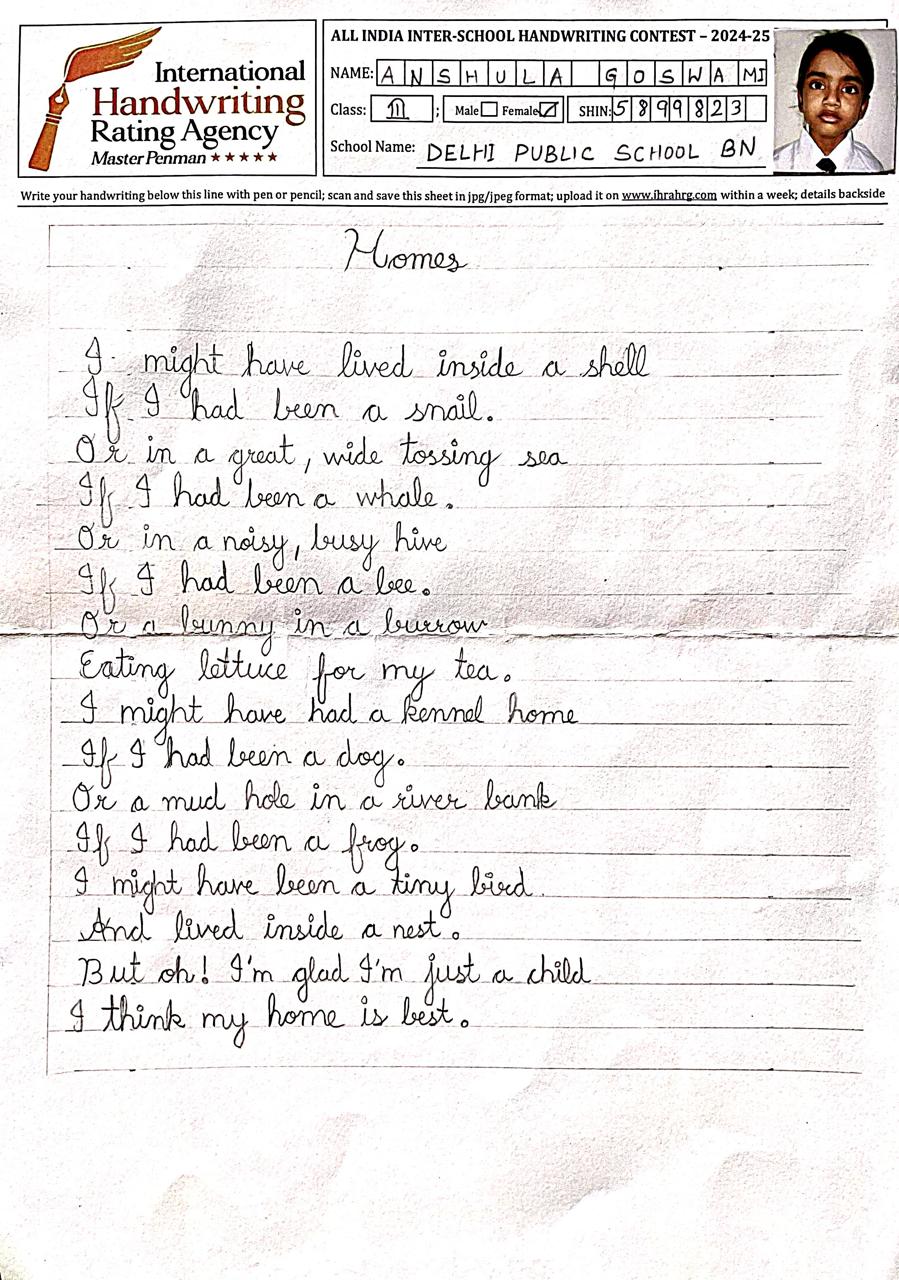 International
Handwriting
Rating Agency
Master Penman ★★★★★
ALL INDIA INTER-SCHOOL HANDWRITING CONTEST – 2024-25
NAME: ANSHULA GOSWAMI
Class: III ; Male Female SHIN: 5899823
School Name: DELHI PUBLIC SCHOOL BN
Write your handwriting below this line with pen or pencil; scan and save this sheet in jpg/jpeg format; upload it on www.ihrahrg.com within a week; details backside
Homes
I might have lived inside a shell
If I had been a snail.
Or in a great, wide tossing sea
If I had been a whale.
Or in a noisy, busy hive
If I had been a bee.
Or a bunny in a burrow
Eating lettuce for my tea.
I might have had a kennel home
If I had been a dog.
Or a mud hole in a river bank
If I had been a frog.
I might have been a tiny bird.
And lived inside a nest.
But oh! I'm glad I'm just a child
I think my home is best.